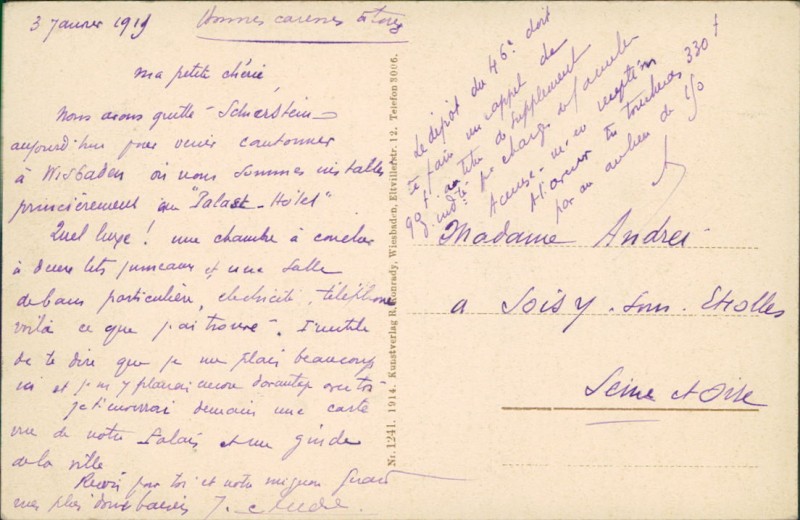 3 Janvier 1919 Bonnes caresses à tous
Ma petite chérie,
Nous avons quitté Schierstein
aujourd'hui pour venir cantonner
à Wisbaden où nous sommes installés
princièrement au "Palast-Hôtel"
Quel luxe ! une chambre à coucher
à deux lits jumeaux et une salle
de bains particulière, électricité, téléphone
voilà ce que j'ai trouvé. Inutile
de te dire que je me plais beaucoup
ici et je m'y plairai encore davantage avec toi
Je t'enverrai demain une carte
vue de notre Palais et un guide
de la ville
Reçois pour toi et notre mignon
mes plus doux baisers J. André.
Nr. 1241. 1914. Kunstverlag R. Konrady, Wiesbaden, Eltvillerstr. 12. Telefon 3006.
Le dépôt du 46e doit
te faire un rappel de
90f au titre de supplément
d'indté pr charges de famille
Accuse-m'en réception
A l'avenir tu toucheras 330f
par au lieu de
Madame André
à Soisy-sous-Etiolles
Seine et Oise